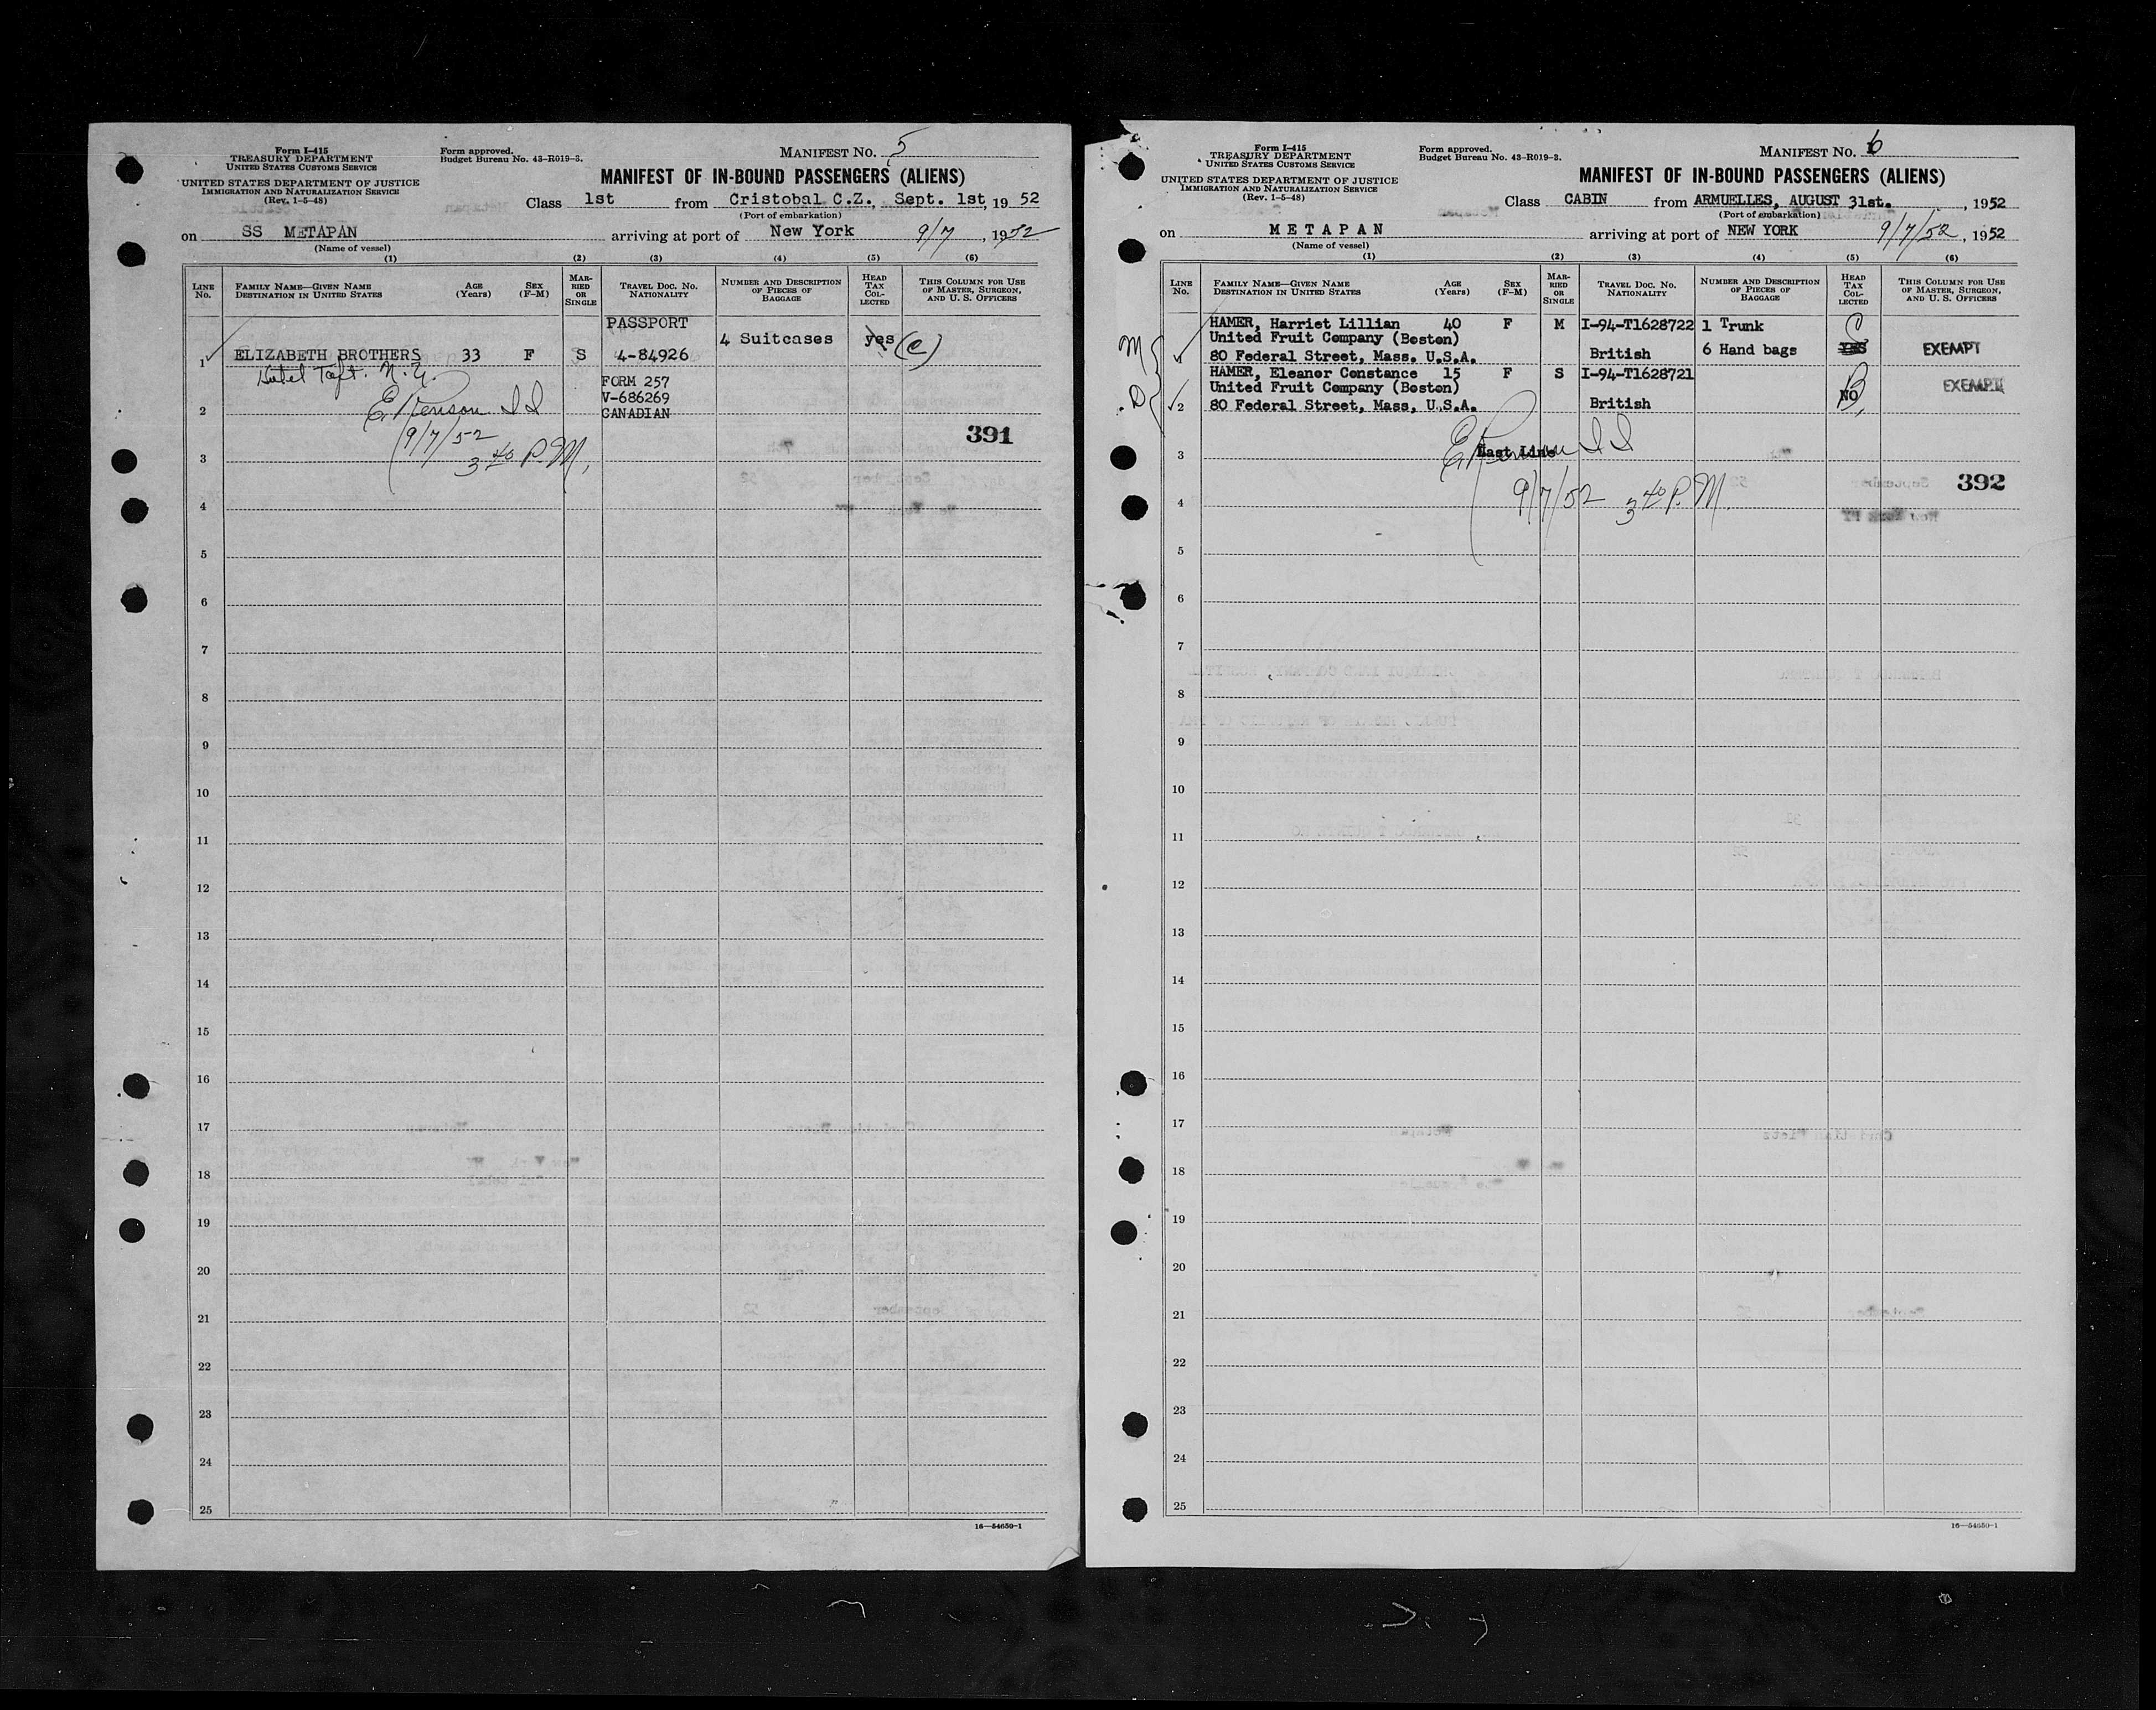 Form I-415
TREASURY DEPARTMENT
UNITED STATES CUSTOMS SERVICE
UNITED STATES DEPARTMENT OF JUSTICE
IMMIGRATION AND NATURALIZATION SERVICE
(Rev. 1-5-48)
Form approved.
Budget Bureau No. 43-R019-3.
MANIFEST NO. 5
MANIFEST OF IN-BOUND PASSENGERS (ALIENS)
Class 1st from Cristobal C.Z., Sept. 1st, 19 52
(Port of embarkation)
on SS METAPAN arriving at port of New York 9/7, 1952
(Name of vessel)
(1) (2) (3) (4) (5) (6)
LINE No. FAMILY NAME—GIVEN NAME DESTINATION IN UNITED STATES AGE (Years) SEX (F-M) MARRIED OR SINGLE TRAVEL DOC. NO. NATIONALITY NUMBER AND DESCRIPTION OF PIECES OF BAGGAGE HEAD TAX COLLECTED THIS COLUMN FOR USE OF MASTER, SURGEON, AND U. S. OFFICERS
PASSPORT
4 Suitcases yes (C)
1 ELIZABETH BROTHERS 33 F S 4-84926
Hotel Taft. N.Y.
FORM 257
V-686269
2 CANADIAN
9/7/52
391
3 3 40 P.M.
4
5
6
7
8
9
10
11
12
13
14
15
16
17
18
19
20
21
22
23
24
25
16—54650-1
Form I-415
TREASURY DEPARTMENT
UNITED STATES CUSTOMS SERVICE
UNITED STATES DEPARTMENT OF JUSTICE
IMMIGRATION AND NATURALIZATION SERVICE
(Rev. 1-5-48)
Form approved.
Budget Bureau No. 43-R019-3.
MANIFEST NO. 6
MANIFEST OF IN-BOUND PASSENGERS (ALIENS)
Class CABIN from ARMUELLES, AUGUST 31st., 1952
(Port of embarkation)
on METAPAN arriving at port of NEW YORK 9/7/52, 1952
(Name of vessel)
(1) (2) (3) (4) (5) (6)
LINE No. FAMILY NAME—GIVEN NAME DESTINATION IN UNITED STATES AGE (Years) SEX (F-M) MARRIED OR SINGLE TRAVEL DOC. NO. NATIONALITY NUMBER AND DESCRIPTION OF PIECES OF BAGGAGE HEAD TAX COLLECTED THIS COLUMN FOR USE OF MASTER, SURGEON, AND U. S. OFFICERS
HAMER, Harriet Lillian 40 F M I-94-T1628722 1 Trunk C
M United Fruit Company (Boston)
1 80 Federal Street, Mass. U.S.A. British 6 Hand bags YES EXEMPT
HAMER, Eleanor Constance 15 F S I-94-T1628721
D United Fruit Company (Boston) B EXEMPT
2 80 Federal Street, Mass, U.S.A. British NO
3 Last Line
392
4 9/7/52 3 40 P.M.
5
6
7
8
9
10
11
12
13
14
15
16
17
18
19
20
21
22
23
24
25
16—54650-1